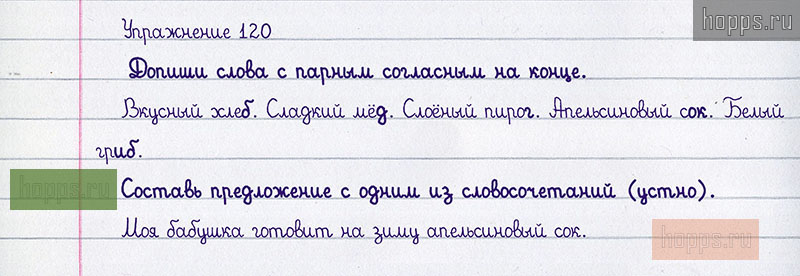 hopps.ru
Упражнение 120
Допиши слова с парным согласным на конце.
Вкусный хлеб. Сладкий мёд. Слоёный пирог. Апельсиновый сок. Белый
гриб.
hopps.ru
Составь предложение с одним из словосочетаний (устно).
Моя бабушка готовит на зиму апельсиновый сок.
hopps.ru